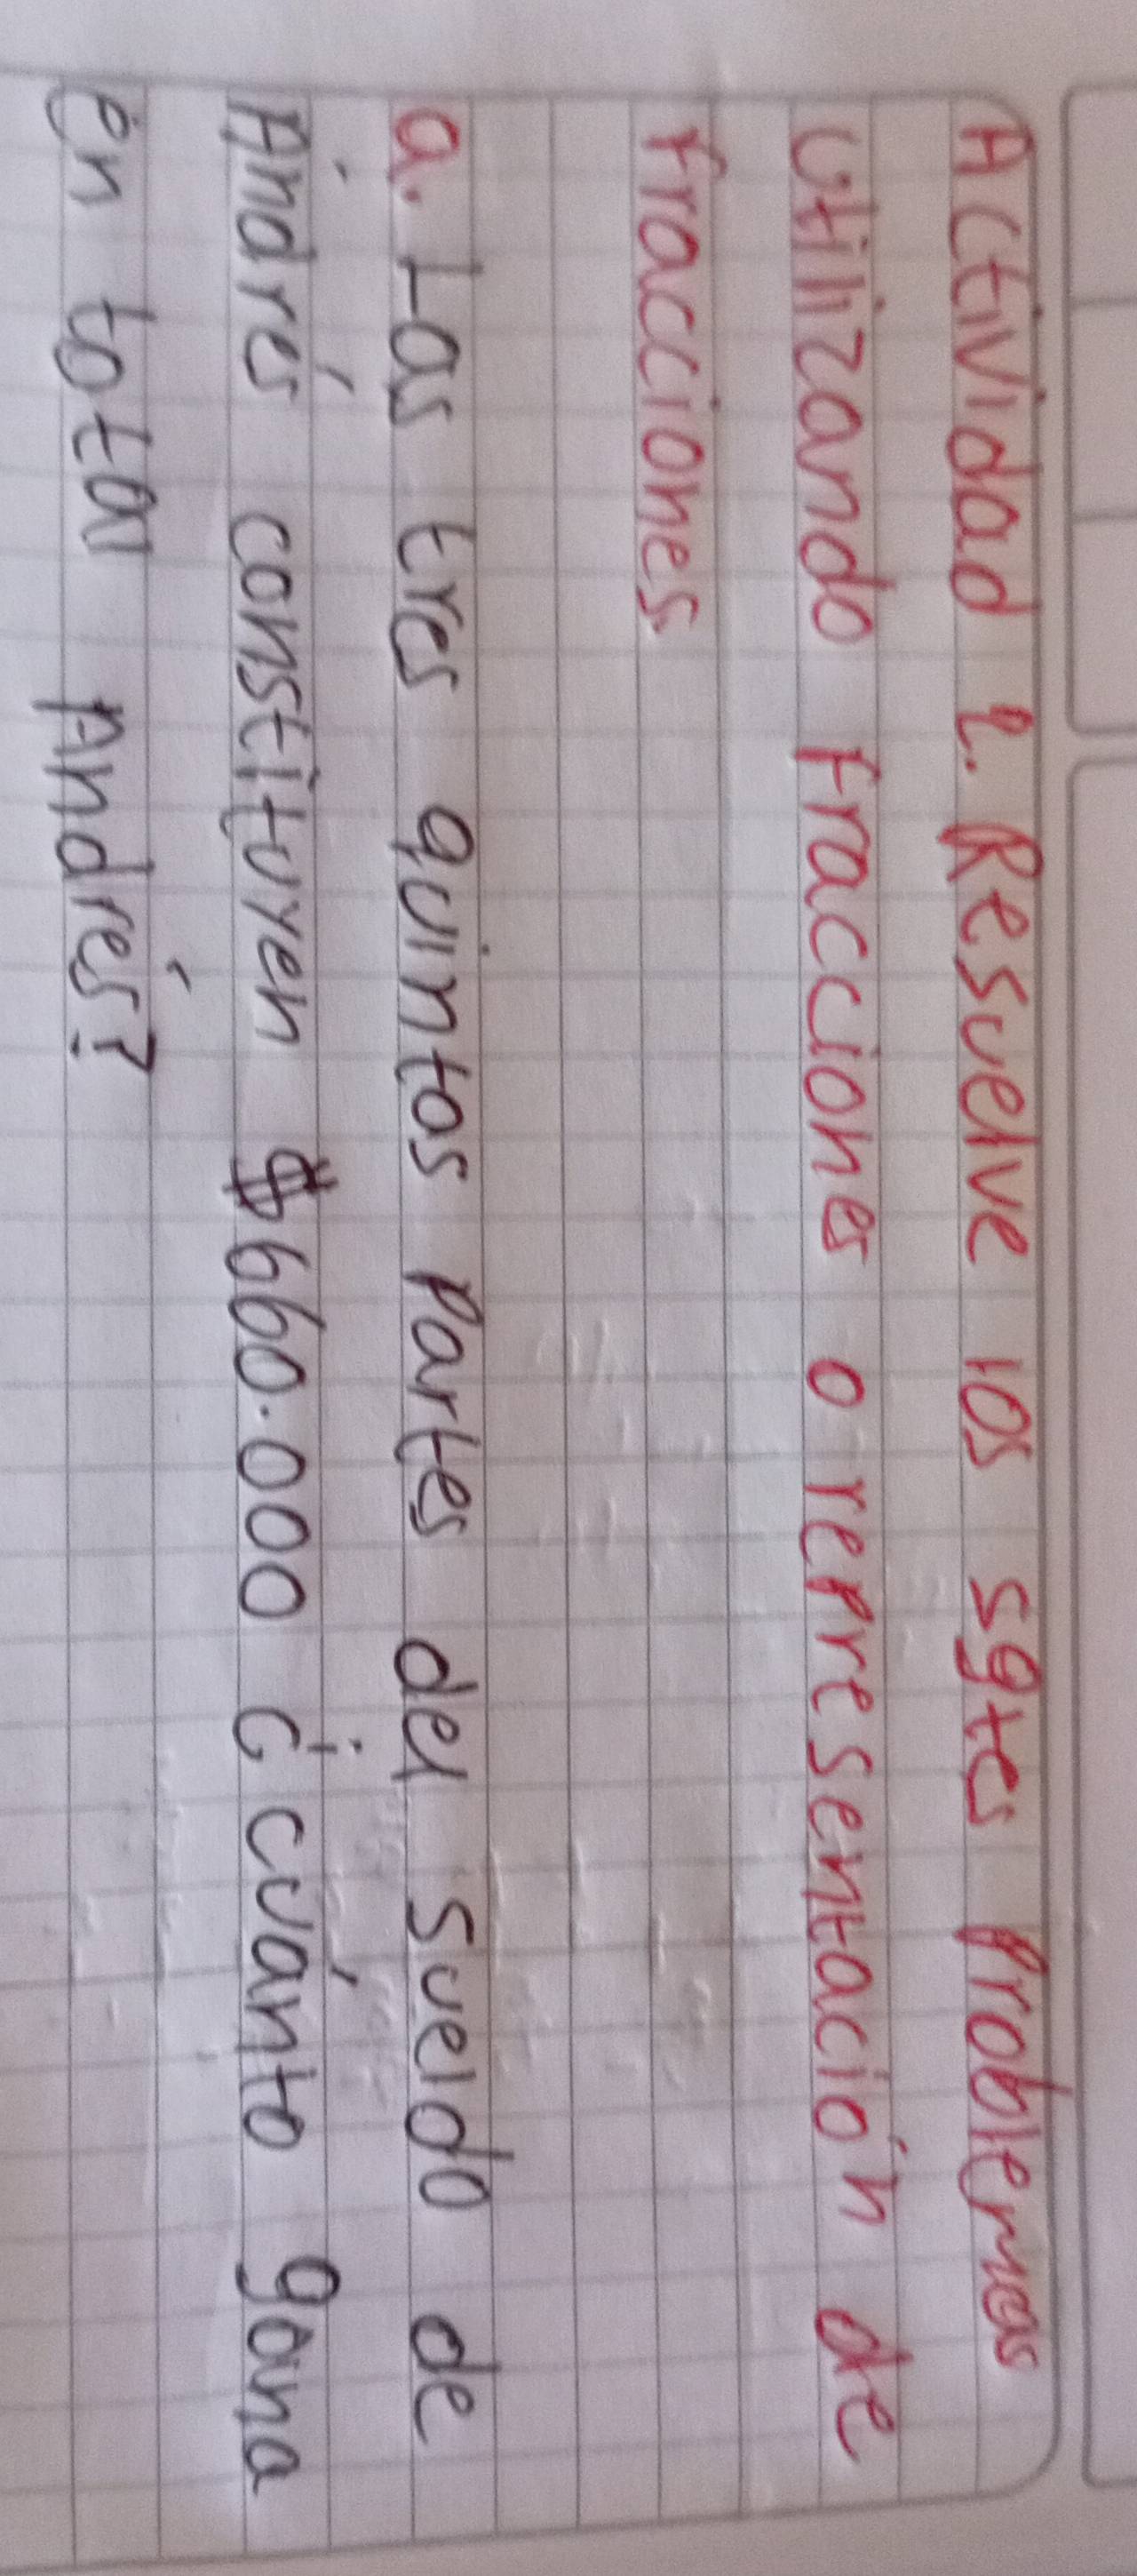 Actividad 2. Resuelve los sgtes problemas
utilizando fracciones o representación de
fracciones
a. Las tres quintas partes del sueldo de
Andrés constituyen $660.000 ¿cuánto gana
en total Andrés?